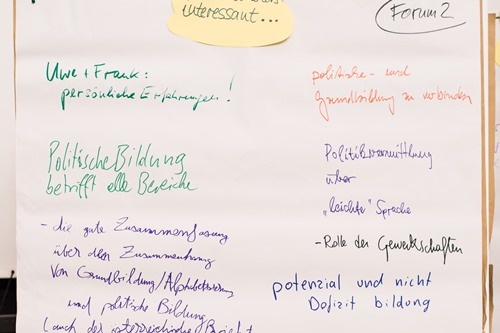 interessant...
Forum 2
Uwe + Frank:
persönliche Erfahrungen!
politische - und
Grundbildung zu verbinden
Politische Bildung
betrifft alle Bereiche
Politikvermittlung
über
„leichte" Sprache
- Rolle der Gewerkschaften
- die gute Zusammenfassung
über den Zusammenhang
von Grundbildung/Alphabetisierung
und politische Bildung
(auch der österreichische Bericht
potenzial und nicht
Defizit bildung